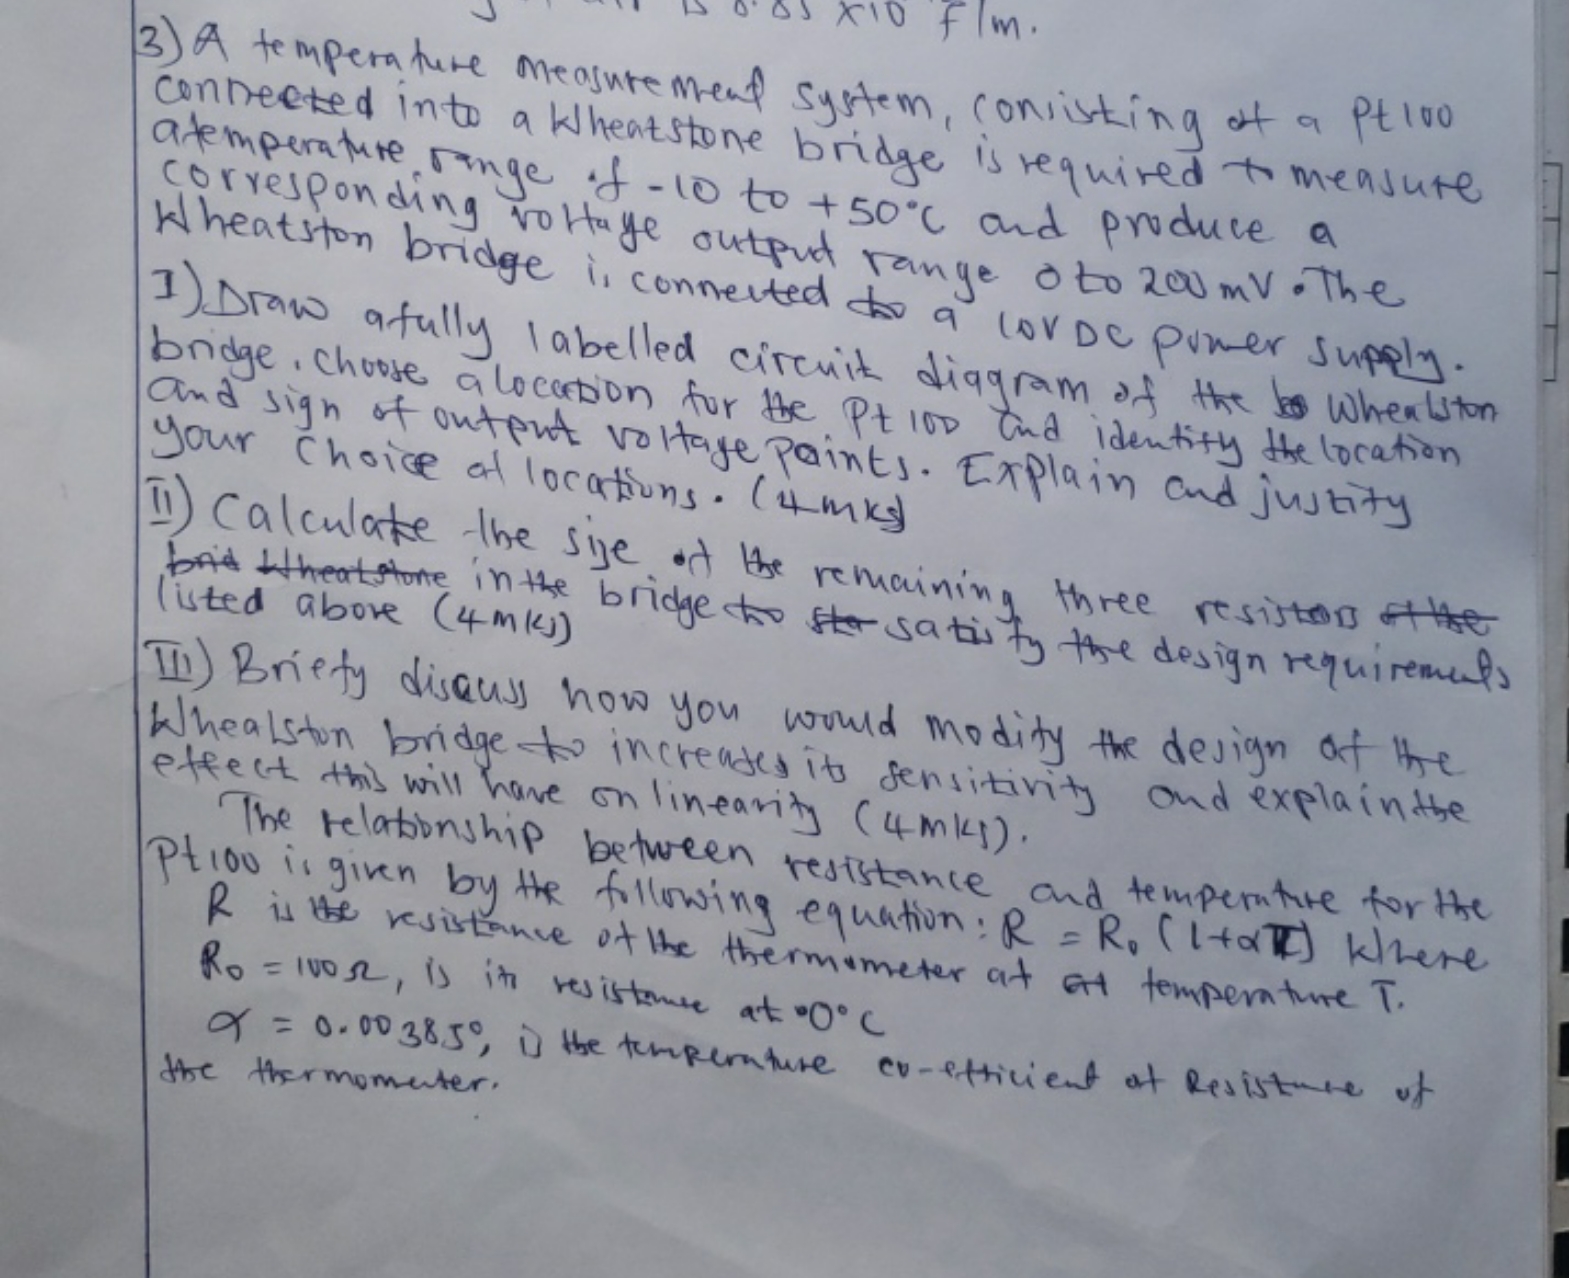 is 8.85 x10 F/m.
3) A temperature measurement system, consisting of a Pt100
connected into a Wheatstone bridge is required to measure
a temperature range of -10 to +50°C and produce a
corresponding voltage output range 0 to 200mV. The
Wheatston bridge is connected to a 10V DC power supply.
I) Draw a fully labelled circuit diagram of the Whealston
bridge. Choose a location for the Pt 100 and identify the location
and sign of output voltage points. Explain and justify
your choice of locations. (4mks)
II) Calculate the size of the remaining three resistors of the
brid Wheatstone in the bridge to satisfy the design requirements
listed above (4mks)
III) Briefy discuss how you would modify the design of the
Whealston bridge to increases its sensitivity and explain the
effect this will have on linearity (4mks).
The relationship between resistance and temperature for the
Pt100 is given by the following equation: R = R₀ (1+αT) Where
R is the resistance of the thermometer at temperature T.
R₀ = 100Ω, is its resistance at 0°C
α = 0.00385°, is the temperature co-efficient of Resistance of
the thermometer.